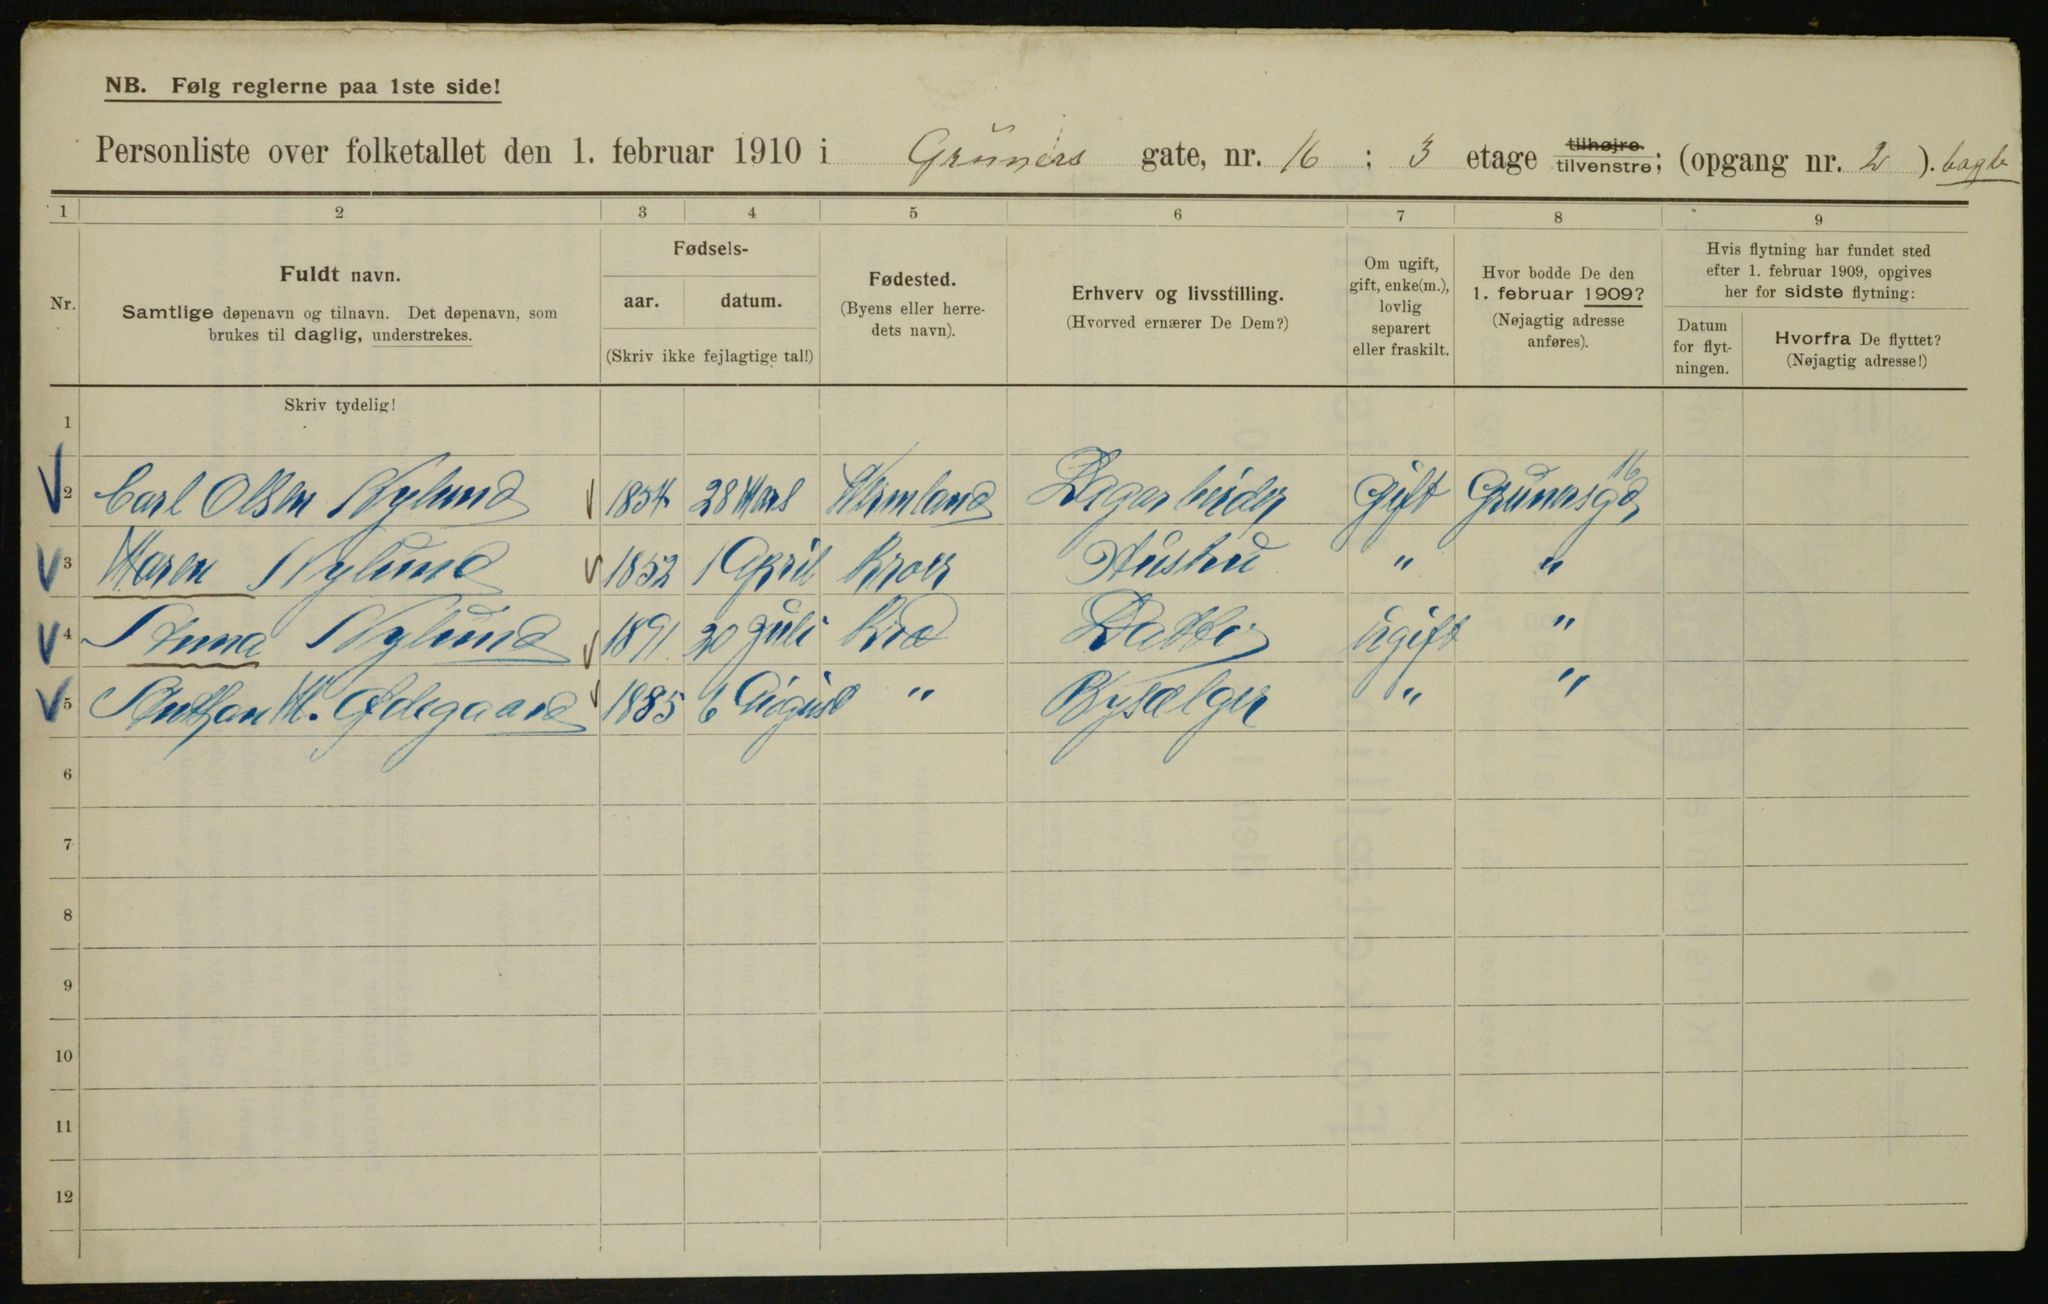 NB. Følg reglerne paa 1ste side!
Personliste over folketallet den 1. februar 1910 i Grüners gate, nr. 16 ; 3 etage tilhøjre. tilvenstre; (opgang nr. 2 ).
1 2 3 4 5 6 7 8 9
Nr.
Fuldt navn.
Samtlige døpenavn og tilnavn. Det døpenavn, som
brukes til daglig, understrekes.
Fødsels-
aar. datum.
(Skriv ikke fejlagtige tal!)
Fødested.
(Byens eller herre-
dets navn).
Erhverv og livsstilling.
(Hvorved ernærer De Dem?)
Om ugift,
gift, enke(m.),
lovlig
separert
eller fraskilt.
Hvor bodde De den
1. februar 1909?
(Nøjagtig adresse
anføres).
Hvis flytning har fundet sted
efter 1. februar 1909, opgives
her for sidste flytning:
Datum
for flyt-
ningen.
Hvorfra De flyttet?
(Nøjagtig adresse!)
Skriv tydelig!
1
2 Carl Olsen Nylund 1854 28 Mars Wermland Dagarbeider Gift Grünersgd 16
3 Maren Nylund 1852 1 April Kroer Hustru " "
4 Anna Nylund 1891 20 Juli Kria Datter ugift "
5 M. Ødegaard 1885 6 August " Bysælger " "
6
7
8
9
10
11
12